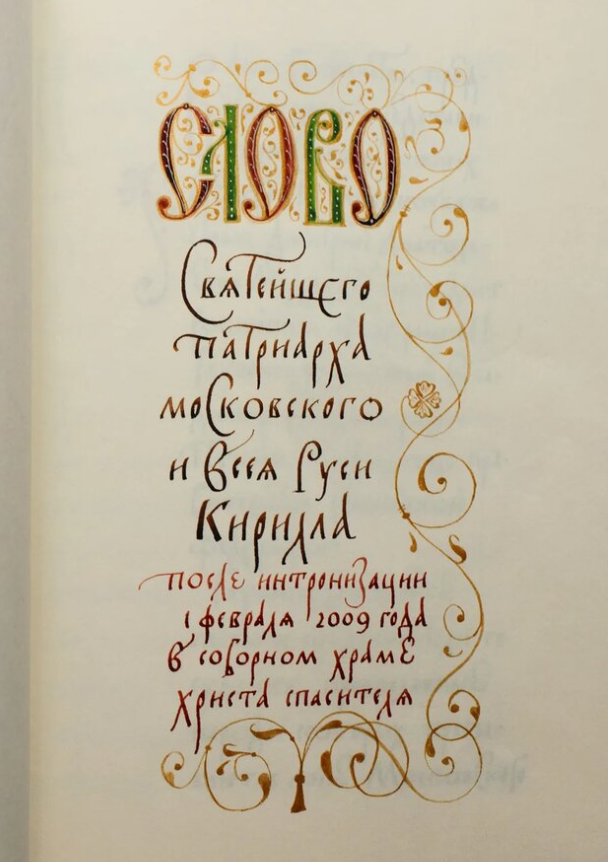 СЛОВО
Святейшего
патриарха
московского
и всея Руси
Кирилла
после интронизации
1 февраля 2009 года
в соборном храме
христа спасителя